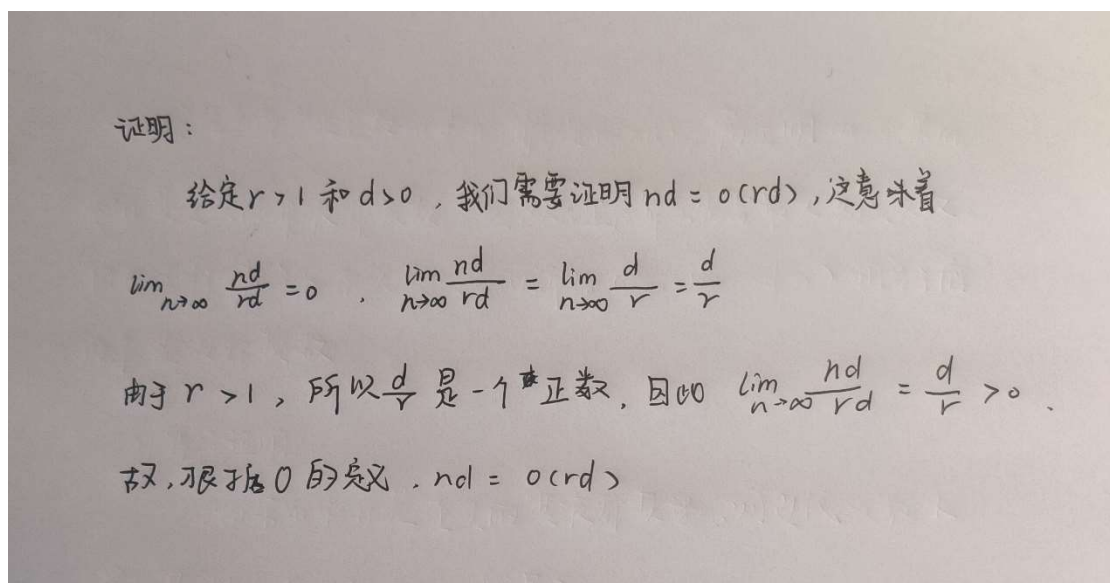 证明：
给定r>1和d>0，我们需要证明nd=o(rd)，这意味着
lim n→∞ nd/rd =0 . lim n→∞ nd/rd = lim n→∞ d/r = d/r
由于r>1，所以 d/r 是一个正数，因此 lim n→∞ nd/rd = d/r >0.
故，根据O的定义. nd = o(rd)